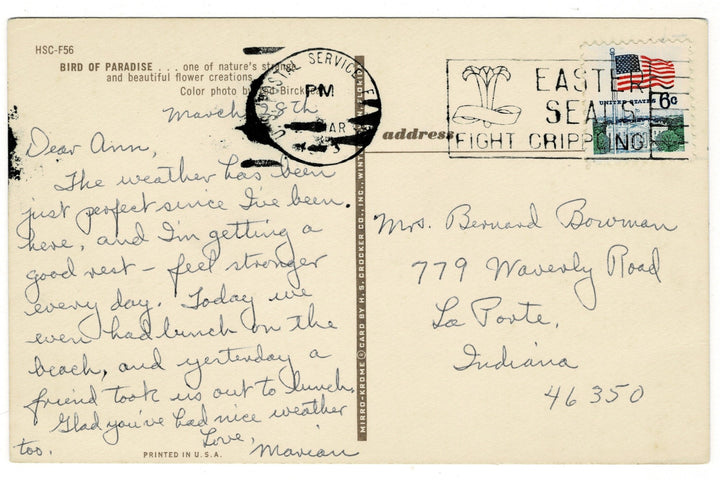 HSC-F56
BIRD OF PARADISE . . . one of nature's strange
and beautiful flower creations.
Color photo by
March 28th
Dear Ann,
The weather has been
just perfect since I've been
here, and I'm getting a
good rest – feel stronger
every day. Today we
even had lunch on the
beach, and yesterday a
friend took us out to lunch.
Glad you've had nice weather
too.
Love,
Marian
PRINTED IN U.S.A.
MIRRO-KROME © CARD BY H. S. CROCKER CO., INC.,
POSTAL SERVICE
PM
MAR
address
EASTER
SEALS
FIGHT CRIPPLING
UNITED STATES 6c
Mrs. Bernard Bowman
779 Waverly Road
La Porte,
Indiana
46350